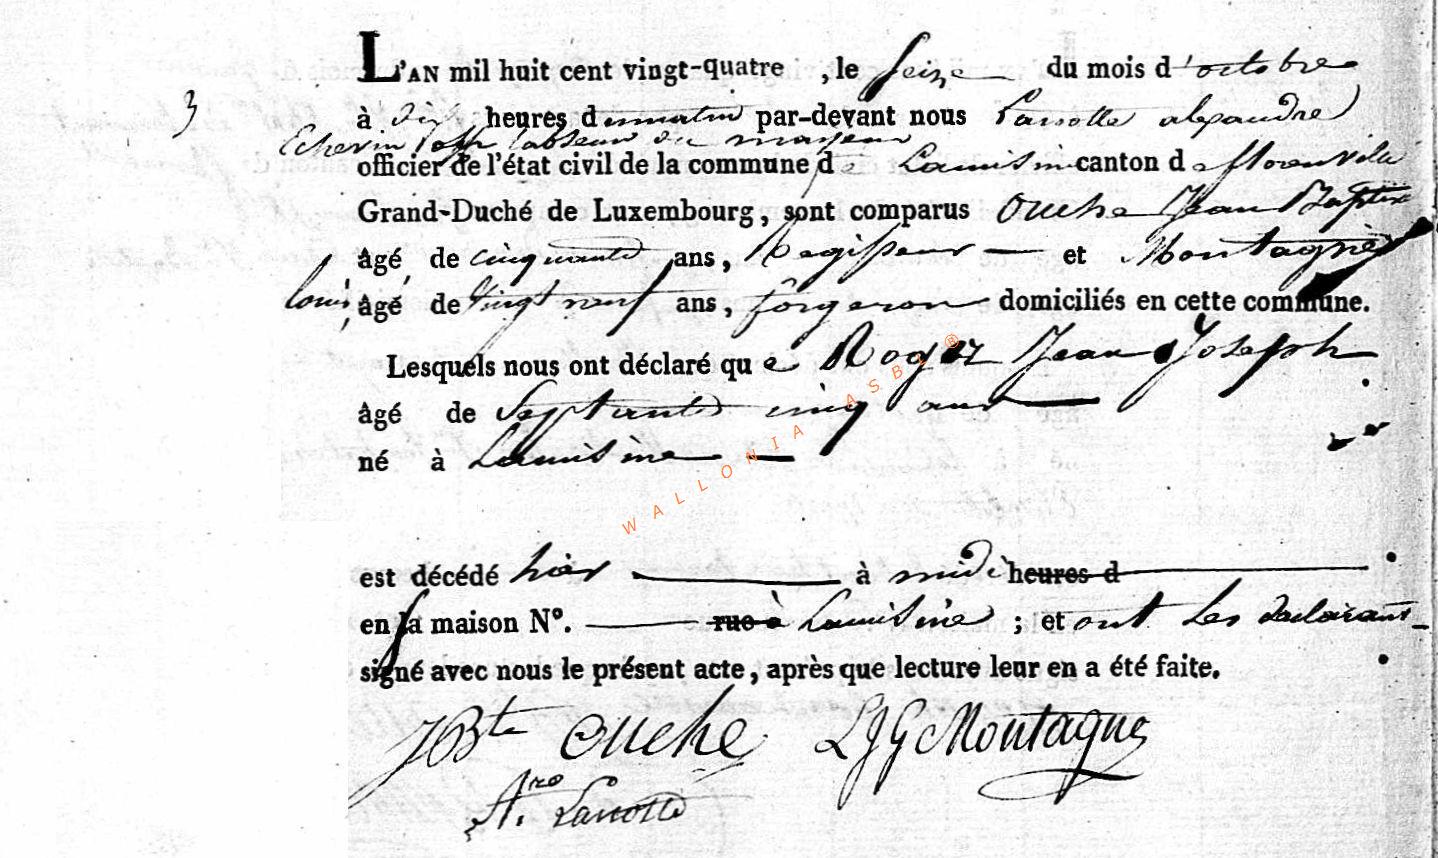 3
L'AN mil huit cent vingt-quatre , le seize du mois d'octobre
à dix heures du matin par-devant nous Lanotte alexandre
Echevin l'absence du mayeur
officier de l'état civil de la commune de Lamisinne canton de florenville
Grand-Duché de Luxembourg, sont comparus Ouche Jean Baptiste
âgé de cinquante ans, Regisseur et Montagne
louis, âgé de vingt neuf ans, forgeron domiciliés en cette commune.
Lesquels nous ont déclaré que Roger Jean Joseph
âgé de Septante cinq ans
né à
est décédé hier à midi heures d
en la maison N°. rue à ; et ont les declarans
signé avec nous le présent acte, après que lecture leur en a été faite.
JBte Ouche LJG Montagne
Alre Lanotte
WALLONIA ASBL ®